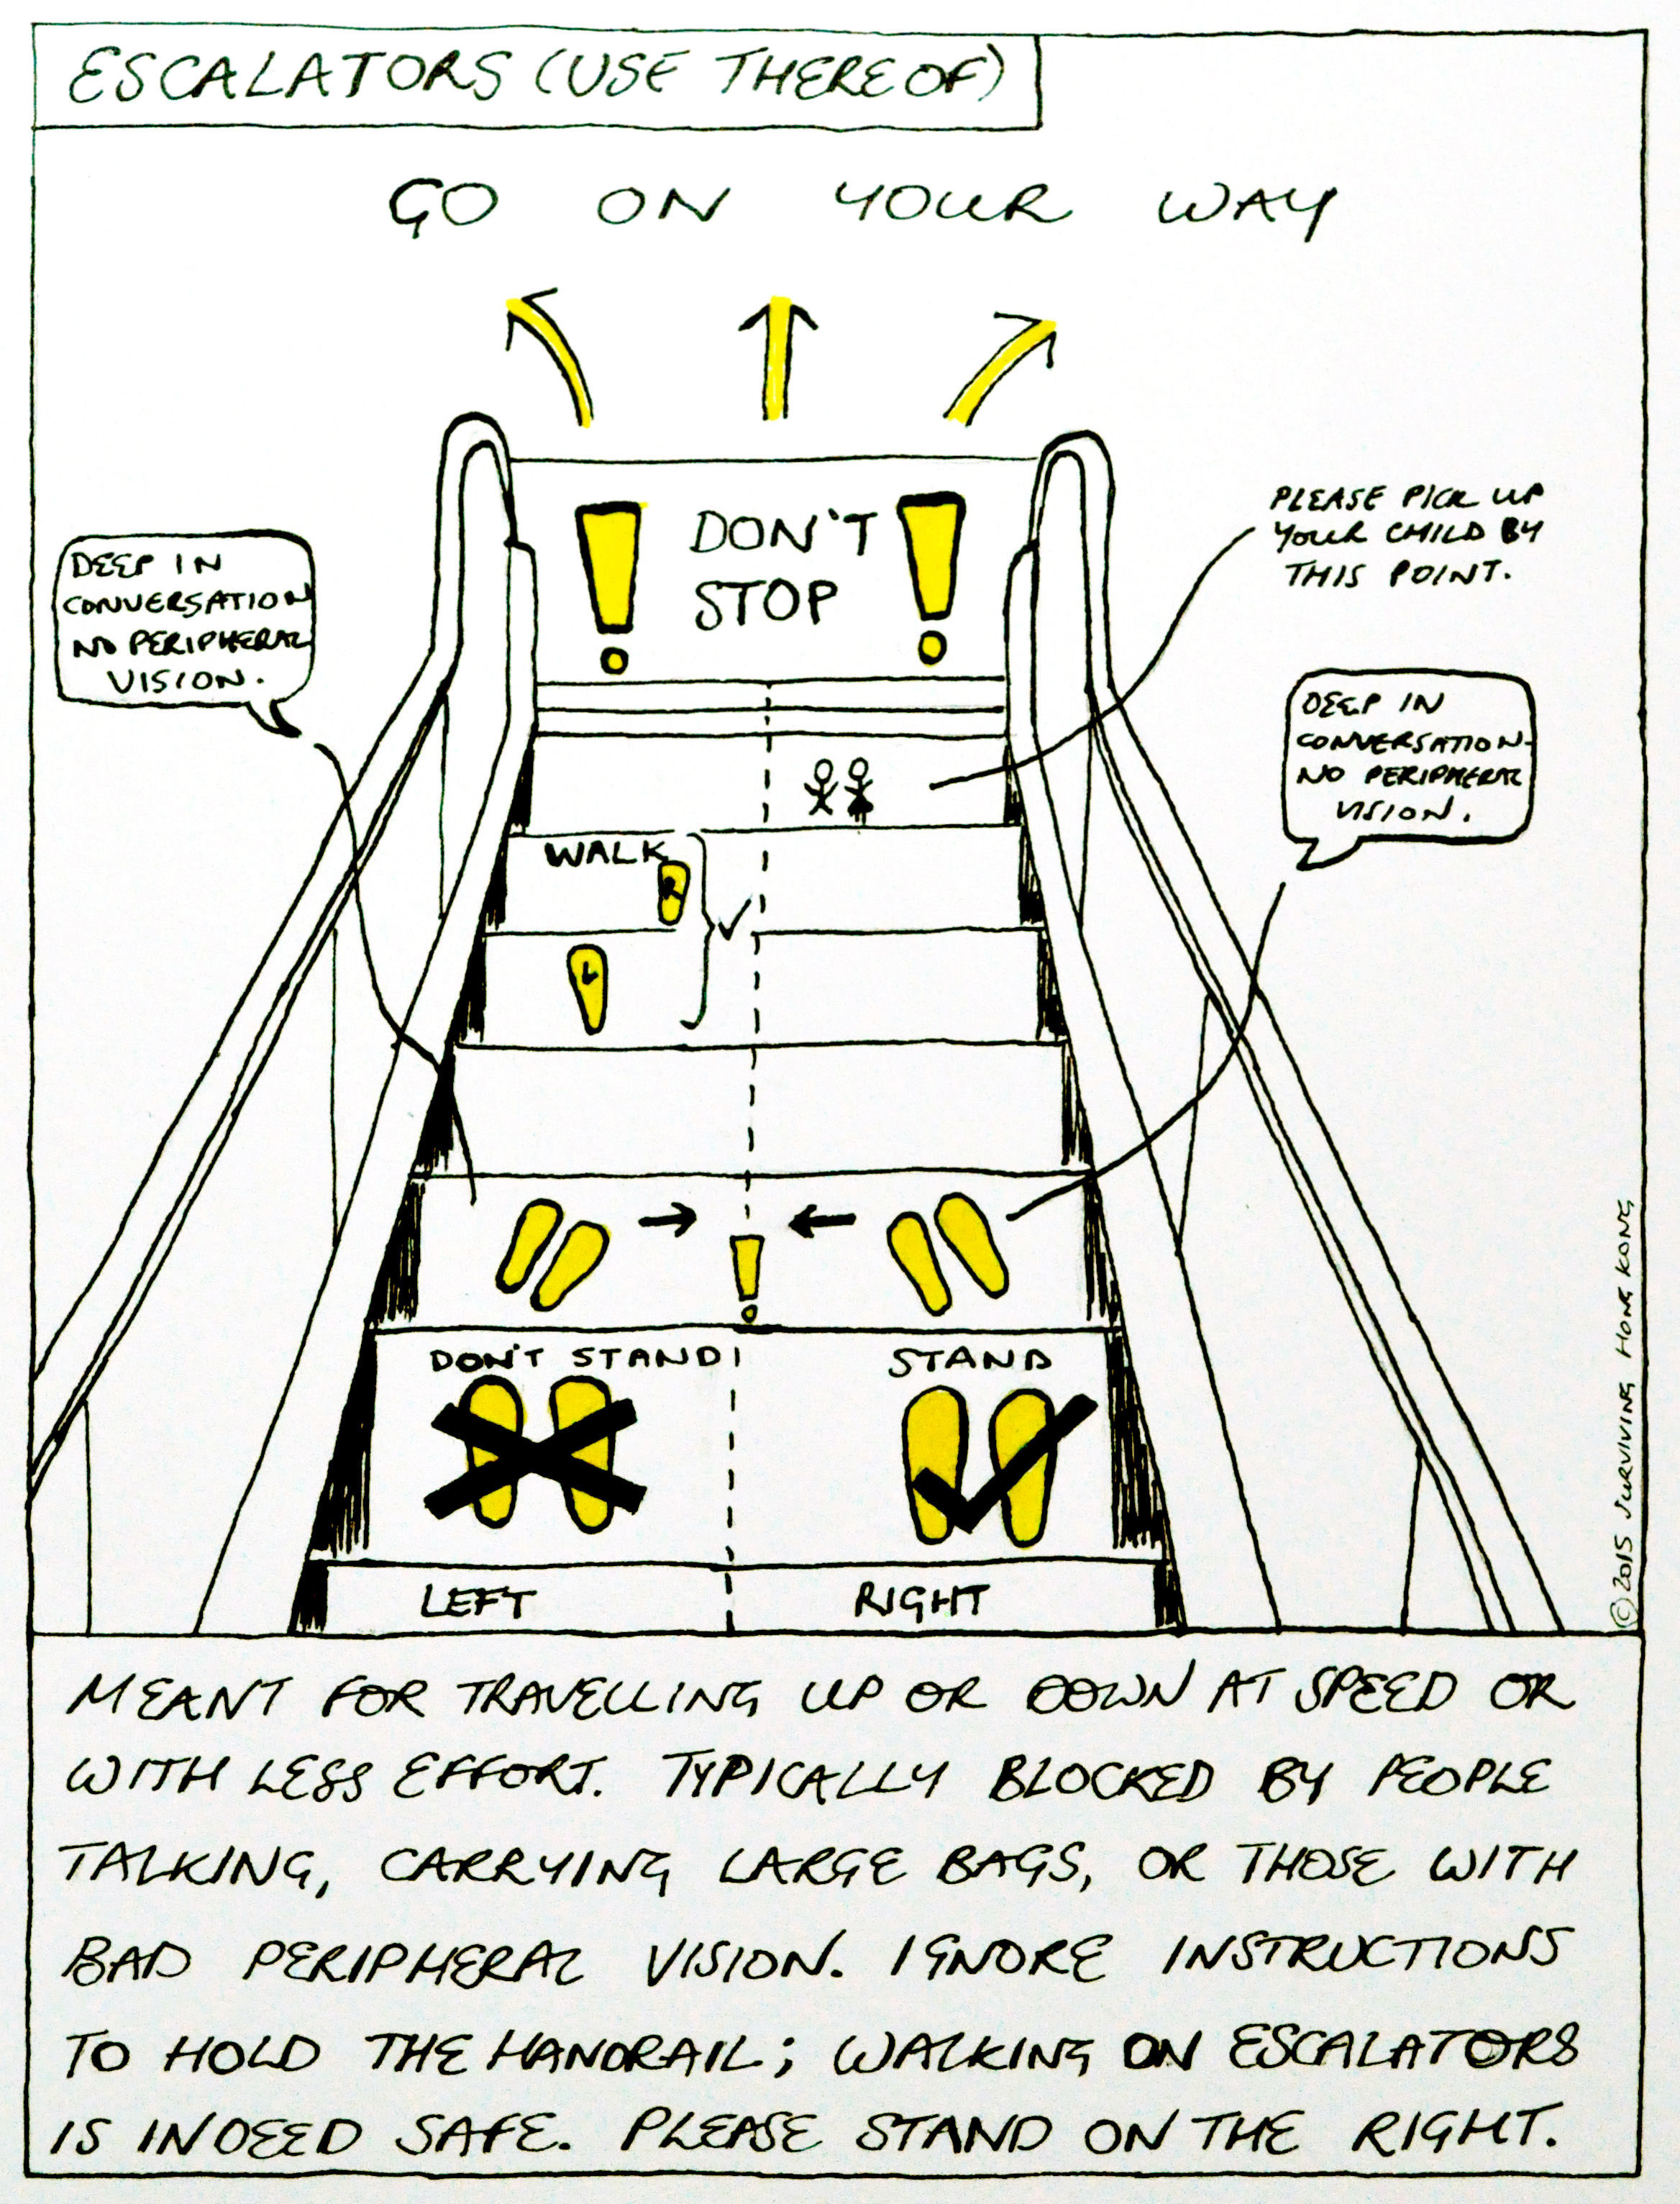 ESCALATORS (USE THEREOF)
GO ON YOUR WAY
DON'T
STOP
PLEASE PICK UP
YOUR CHILD BY
THIS POINT.
DEEP IN
CONVERSATION
NO PERIPHERAL
VISION.
DEEP IN
CONVERSATION.
NO PERIPHERAL
VISION.
WALK
R
L
DON'T STAND
STAND
LEFT
RIGHT
©2015 SURVIVING HONG KONG
MEANT FOR TRAVELLING UP OR DOWN AT SPEED OR
WITH LESS EFFORT. TYPICALLY BLOCKED BY PEOPLE
TALKING, CARRYING LARGE BAGS, OR THOSE WITH
BAD PERIPHERAL VISION. IGNORE INSTRUCTIONS
TO HOLD THE HANDRAIL; WALKING ON ESCALATORS
IS INDEED SAFE. PLEASE STAND ON THE RIGHT.